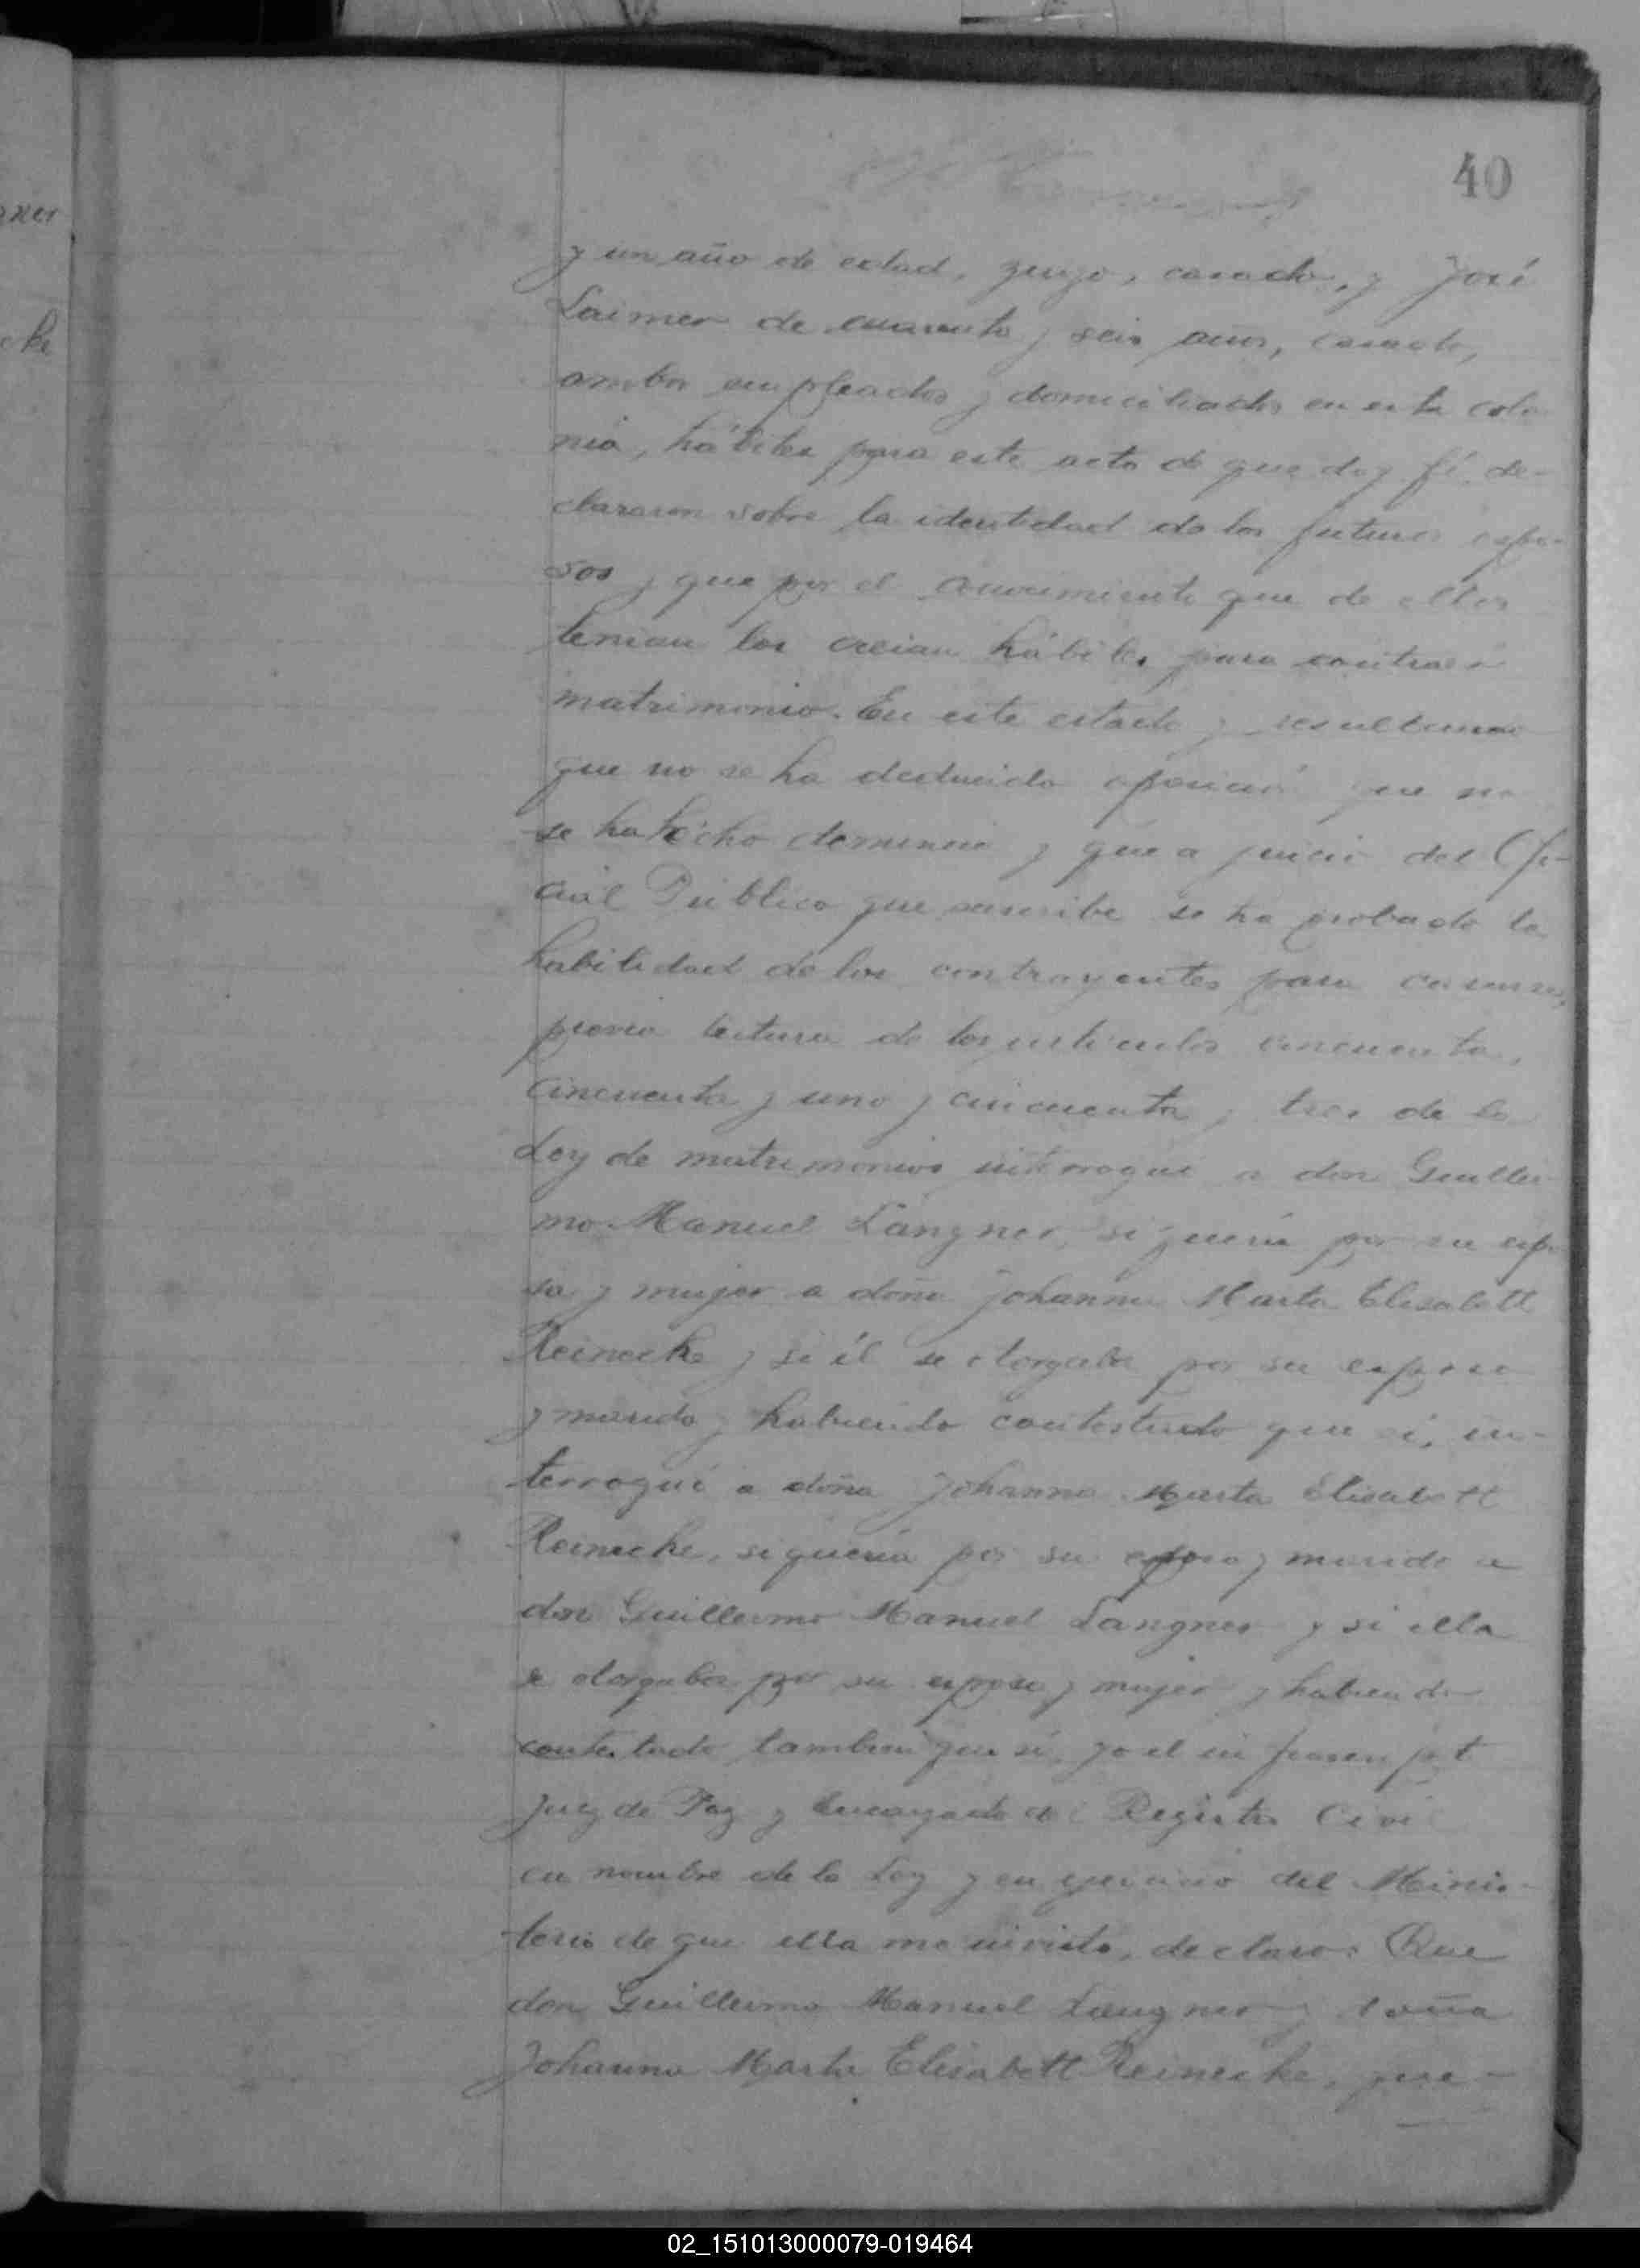 40
y un año de edad, suizo, casado, y José
Laimer de cuarenta y seis años, casado,
ambos empleados y domiciliados en esta colo
nia, hábiles para este acto de que doy fé, de-
clararon sobre la identidad de los futuros espo-
sos y que por el conocimiento que de ellos
tenian los creian hábiles para contraer
matrimonio. En este estado y resultando
que no se ha deducido oposición que no
se ha hecho denuncia y que a juicio del Ofi-
cial Público que suscribe se ha probado la
habilidad de los contrayentes para casarse,
previa lectura de los articulos cincuenta,
cincuenta y uno y cincuenta y tres de la
Ley de matrimonios interrogué a don Guiller
mo Manuel Langner, si queria por su espo
sa y mujer a doña Johanna Marta Elisabett
Reinecke y si él se otorgaba por su esposo
y marido y habiendo contestado que si, in-
terrogué a doña Johanna Marta Elisabett
Reinecke, si queria por su esposo y marido a
don Guillermo Manuel Langner y si ella
se otorgaba por su esposa y mujer y habiendo
contestado tambien que si, yo el
Juez de Paz y Encargado del Registro Civil
en nombre de la Ley y en ejercicio del Minis-
terio de que ella me inviste, declaro: Que
don Guillermo Manuel Langner y doña
Johanna Marta Elisabett Reinecke, que-
02_151013000079-019464